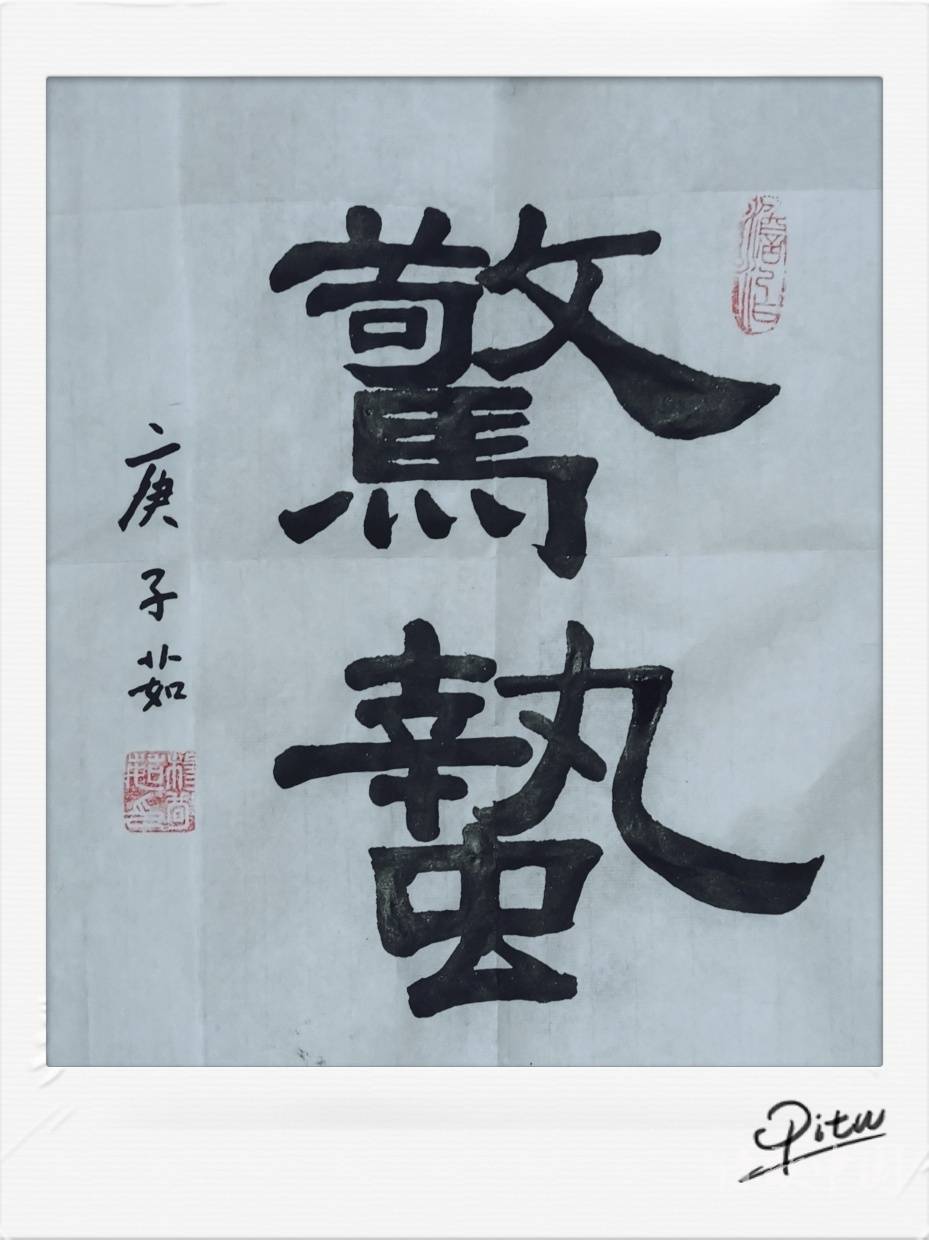 驚蟄
庚子茹
Pitu